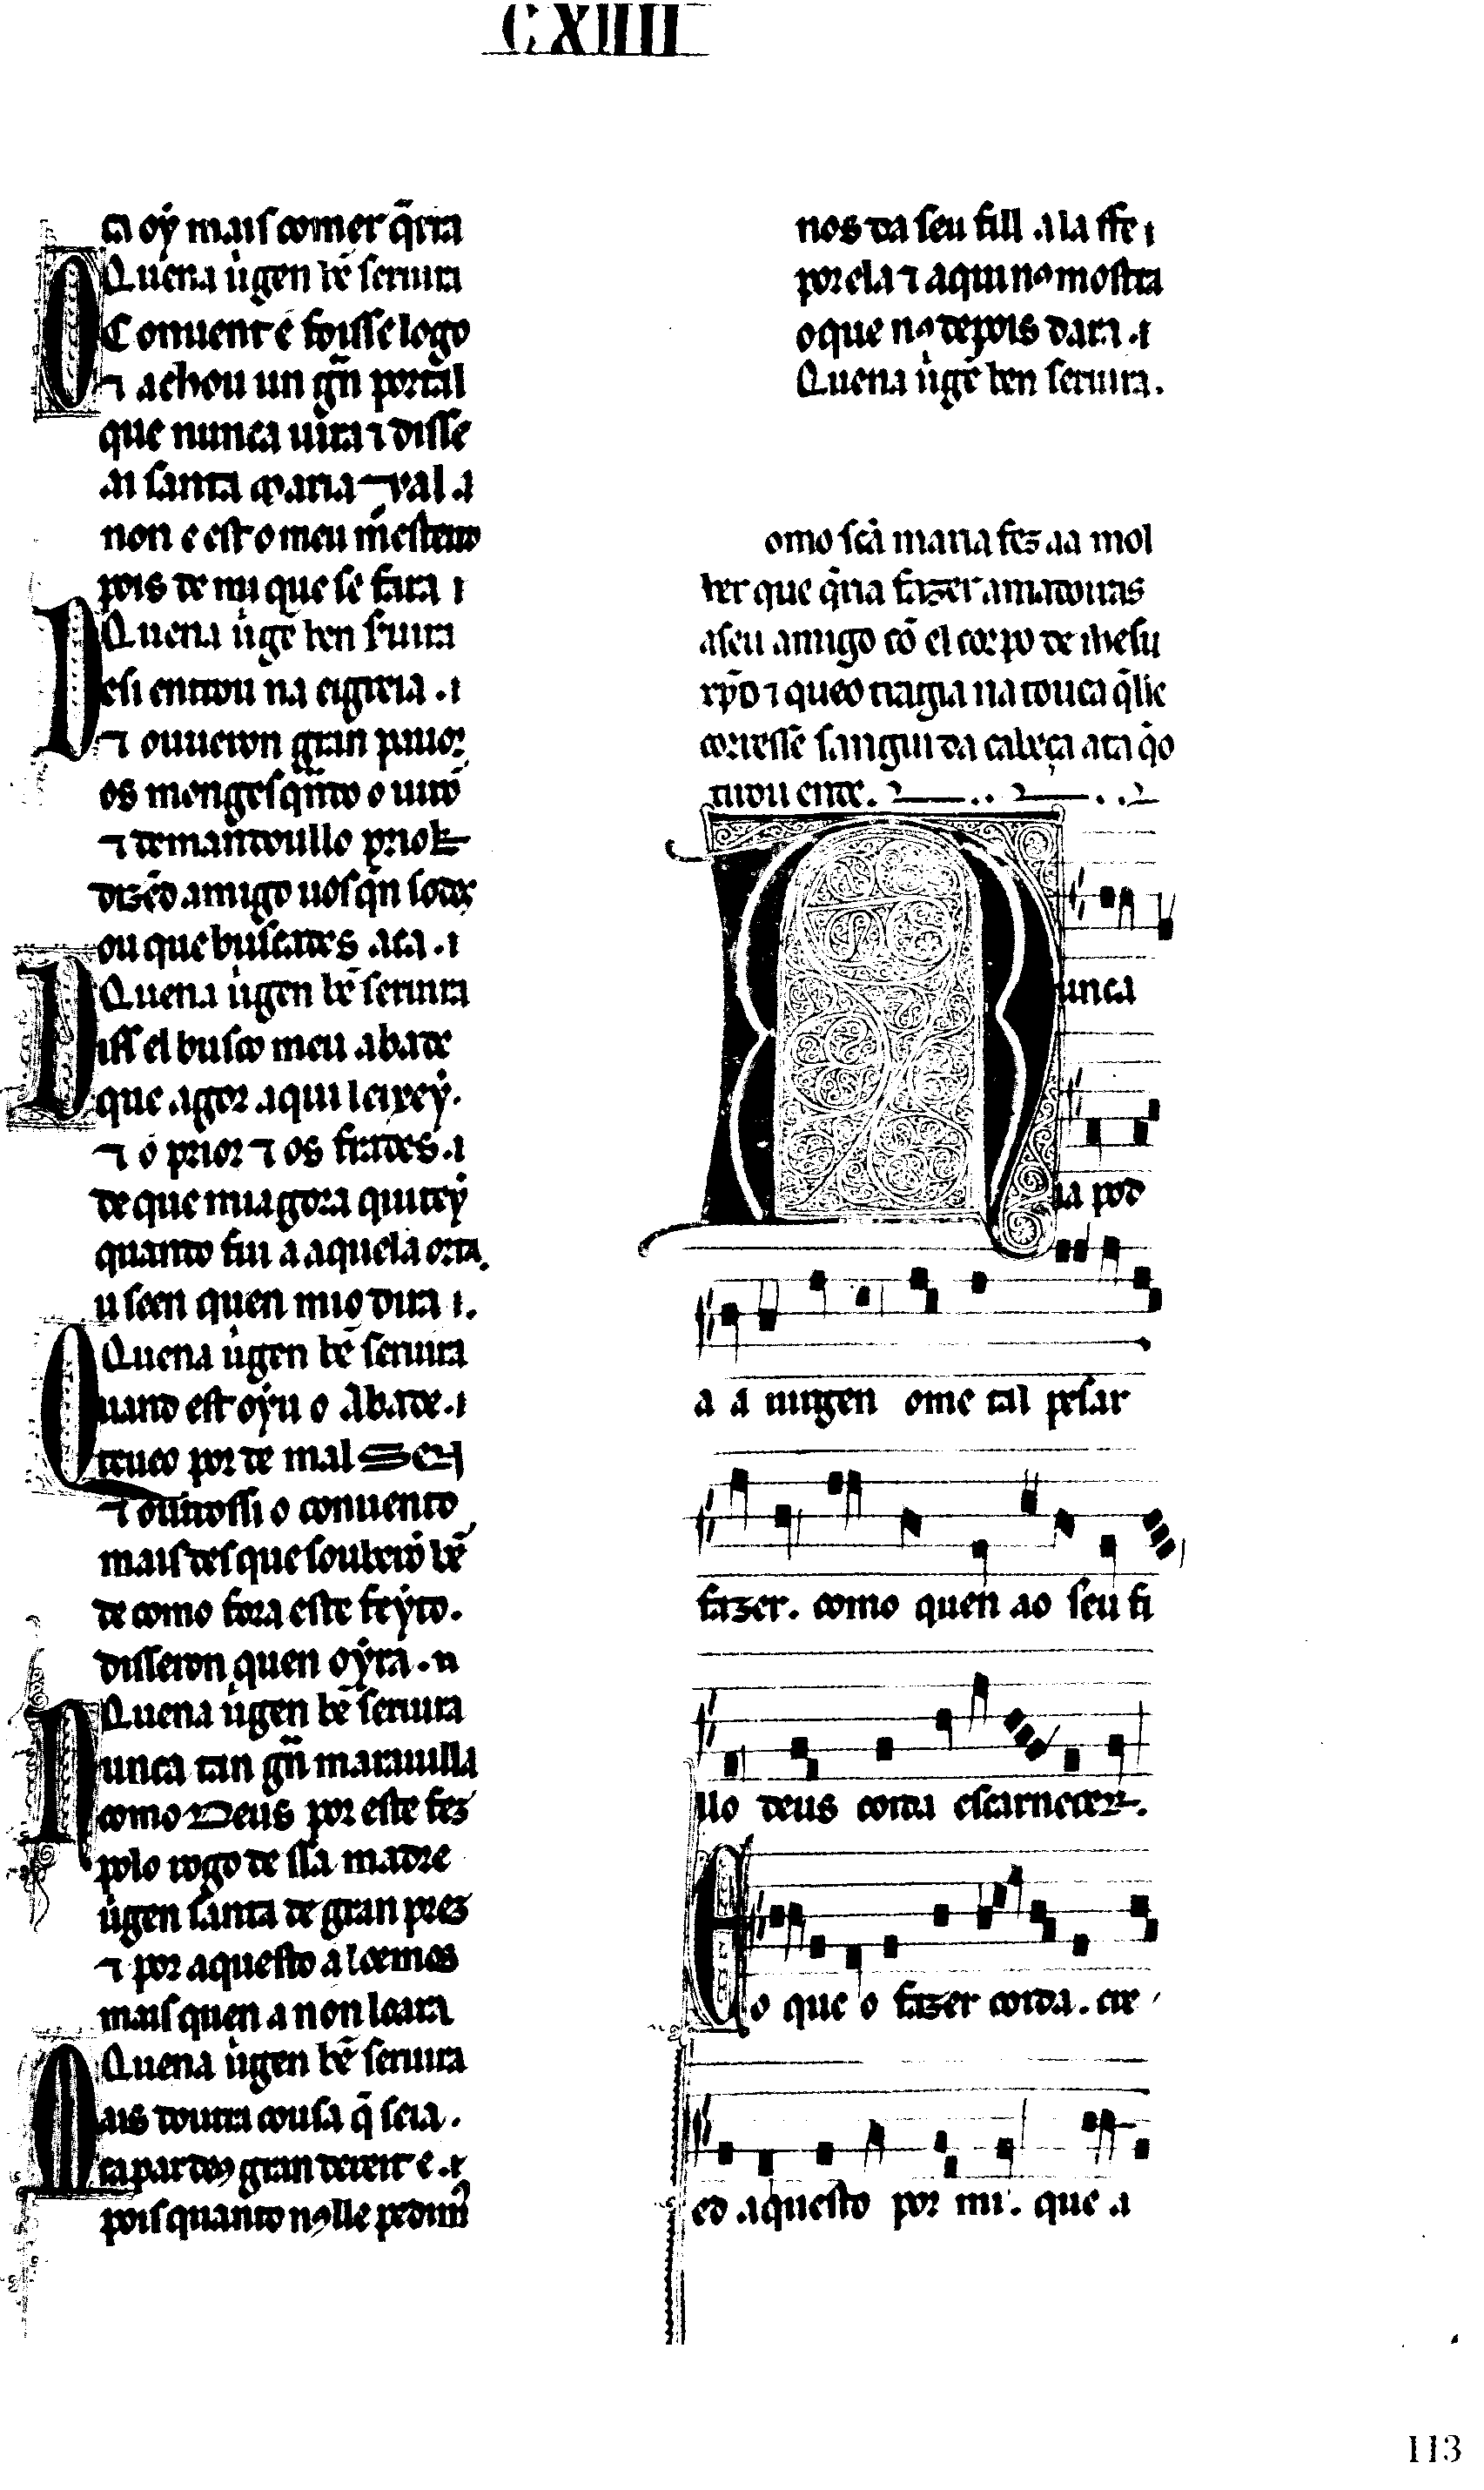 CXIIII
ca oẏ mais comer q̄rra
Quena uͥgen bē seruira
Conuent e foisse logo
⁊ achou un grā̃n portal
que nunca uira ⁊ disse
ai santa maria ual a
non e est o meu mͥosteiro
pois de mi que se fara ı
Quena uͥgē ben sͥuira
Desi entrou na eigreia .ı
⁊ ouueron gran pauor
os monges qͣndo o uirō
⁊ demandoullo prior
dizēd amigo uos qͥn sodes
ou que buscades aca .ı
Quena uͥgen bē seruira
Diss el busco meu abade
que agor aqui leixeẏ.
⁊ o prior ⁊ os frades .ı
de que mi agora quiteẏ
quando fui a aquela orta.
u seen quen mio dira ı.
Quena uͥgen bē seruira
Quand est oẏu o Abade .ı
teueo por de mal sen
⁊ outrossi o conuento
mais des que souberō bē
de como fora este feẏto.
disseron quen oẏra .ıı
Quena uͥgen bē seruira
Nunca tan grā̃n marauilla
como Deus por este fez
polo rogo de ssa madre
uͥgen santa de gran prez
⁊ por aquesto a loemos
mais quen a non loara
Quena uͥgen bē seruira
Mais doutra cousa q̄ seia .
ca par deꝰ gran dereit e .ı
pois quanto nos lle pedimꝰ
nos da seu fill a la ffe ı
por ela ⁊ aqui noꝰ mostra
o que noꝰ depois dara .ı
Quena uͥgē ben seruira.
omo scā maria fez aa mol
ler que q̄ria fazer amadouras
a seu amigo cō el corpo de ihesu
xp̄o ⁊ queo tragia na touca q̄lle
corresse sangui da cabeça ata q̄o
tirou ende.
Nunca
ia pod
a a uirgen ome tal pesar
fazer. como quen ao seu fi
llo deus coida escarnecer.
E o que o fazer coida. cre
ed aquesto por mi. que a
113